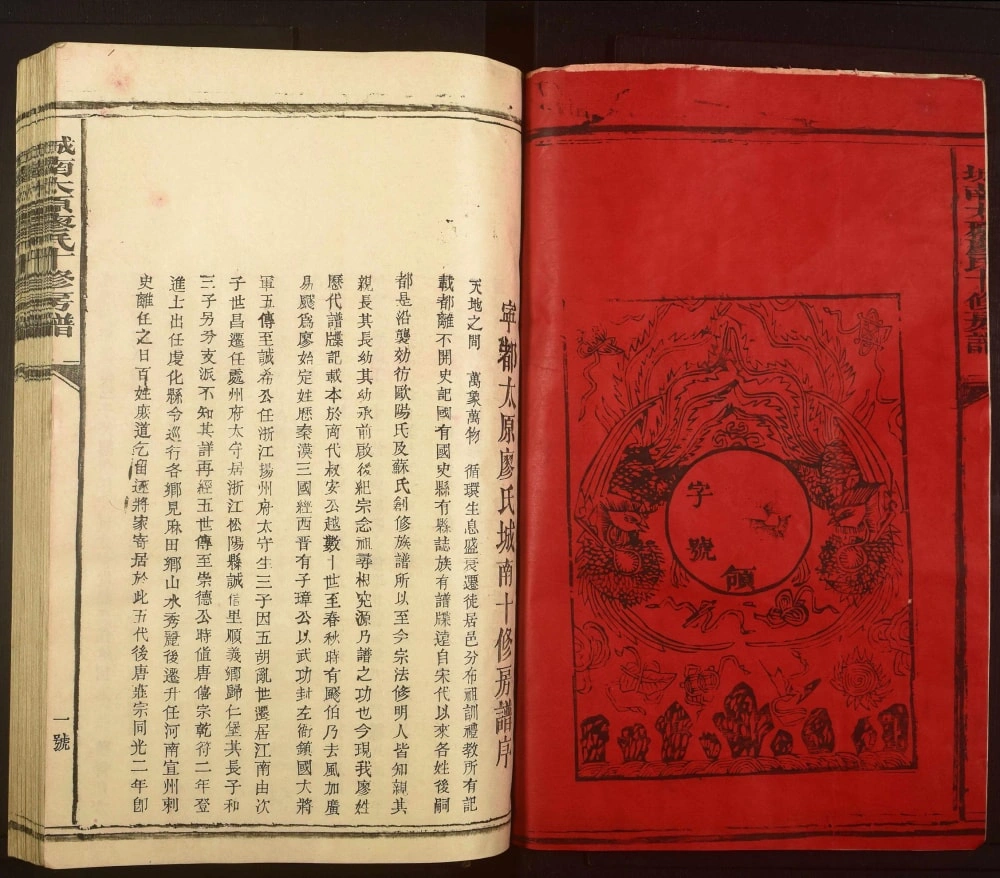 城南太原廖氏十修房譜
字號
領
寧都太原廖氏城南十修房譜序
天地之間 萬象萬物 循環生息盛衰遷徒居邑分布祖訓禮教所有記
載都離不開史記國有國史縣有縣誌族有譜牒遠自宋代以來各姓後嗣
都是沿襲効彷歐陽氏及蘇氏創修族譜所以至今宗法修明人皆知親其
親長其長幼其幼承前啟後紀宗念祖尋根究源乃譜之功也今現我廖姓
歷代譜牒記載本於商代叔安公越數十世至春秋時有颺伯乃去風加廣
易颺爲廖始定姓歷秦漢三國經西晋有子璋公以武功封左衙鎮國大將
軍五傳至誠希公任浙江揚州府太守生三子因五胡亂世遷居江南由次
子世昌遷任處州府太守居浙江松陽縣誠信里順義鄉歸仁堡其長子和
三子另分支派不知其詳再經五世傳至崇德公時值唐僖宗乾符二年登
進士出任虔化縣令巡行各鄉見麻田鄉山水秀麗後遷升任河南宣州刺
史離任之日百姓廒道乞留逐將家寄居於此五代後唐莊宗同光二年卽
城南太原廖氏十修房譜
一號